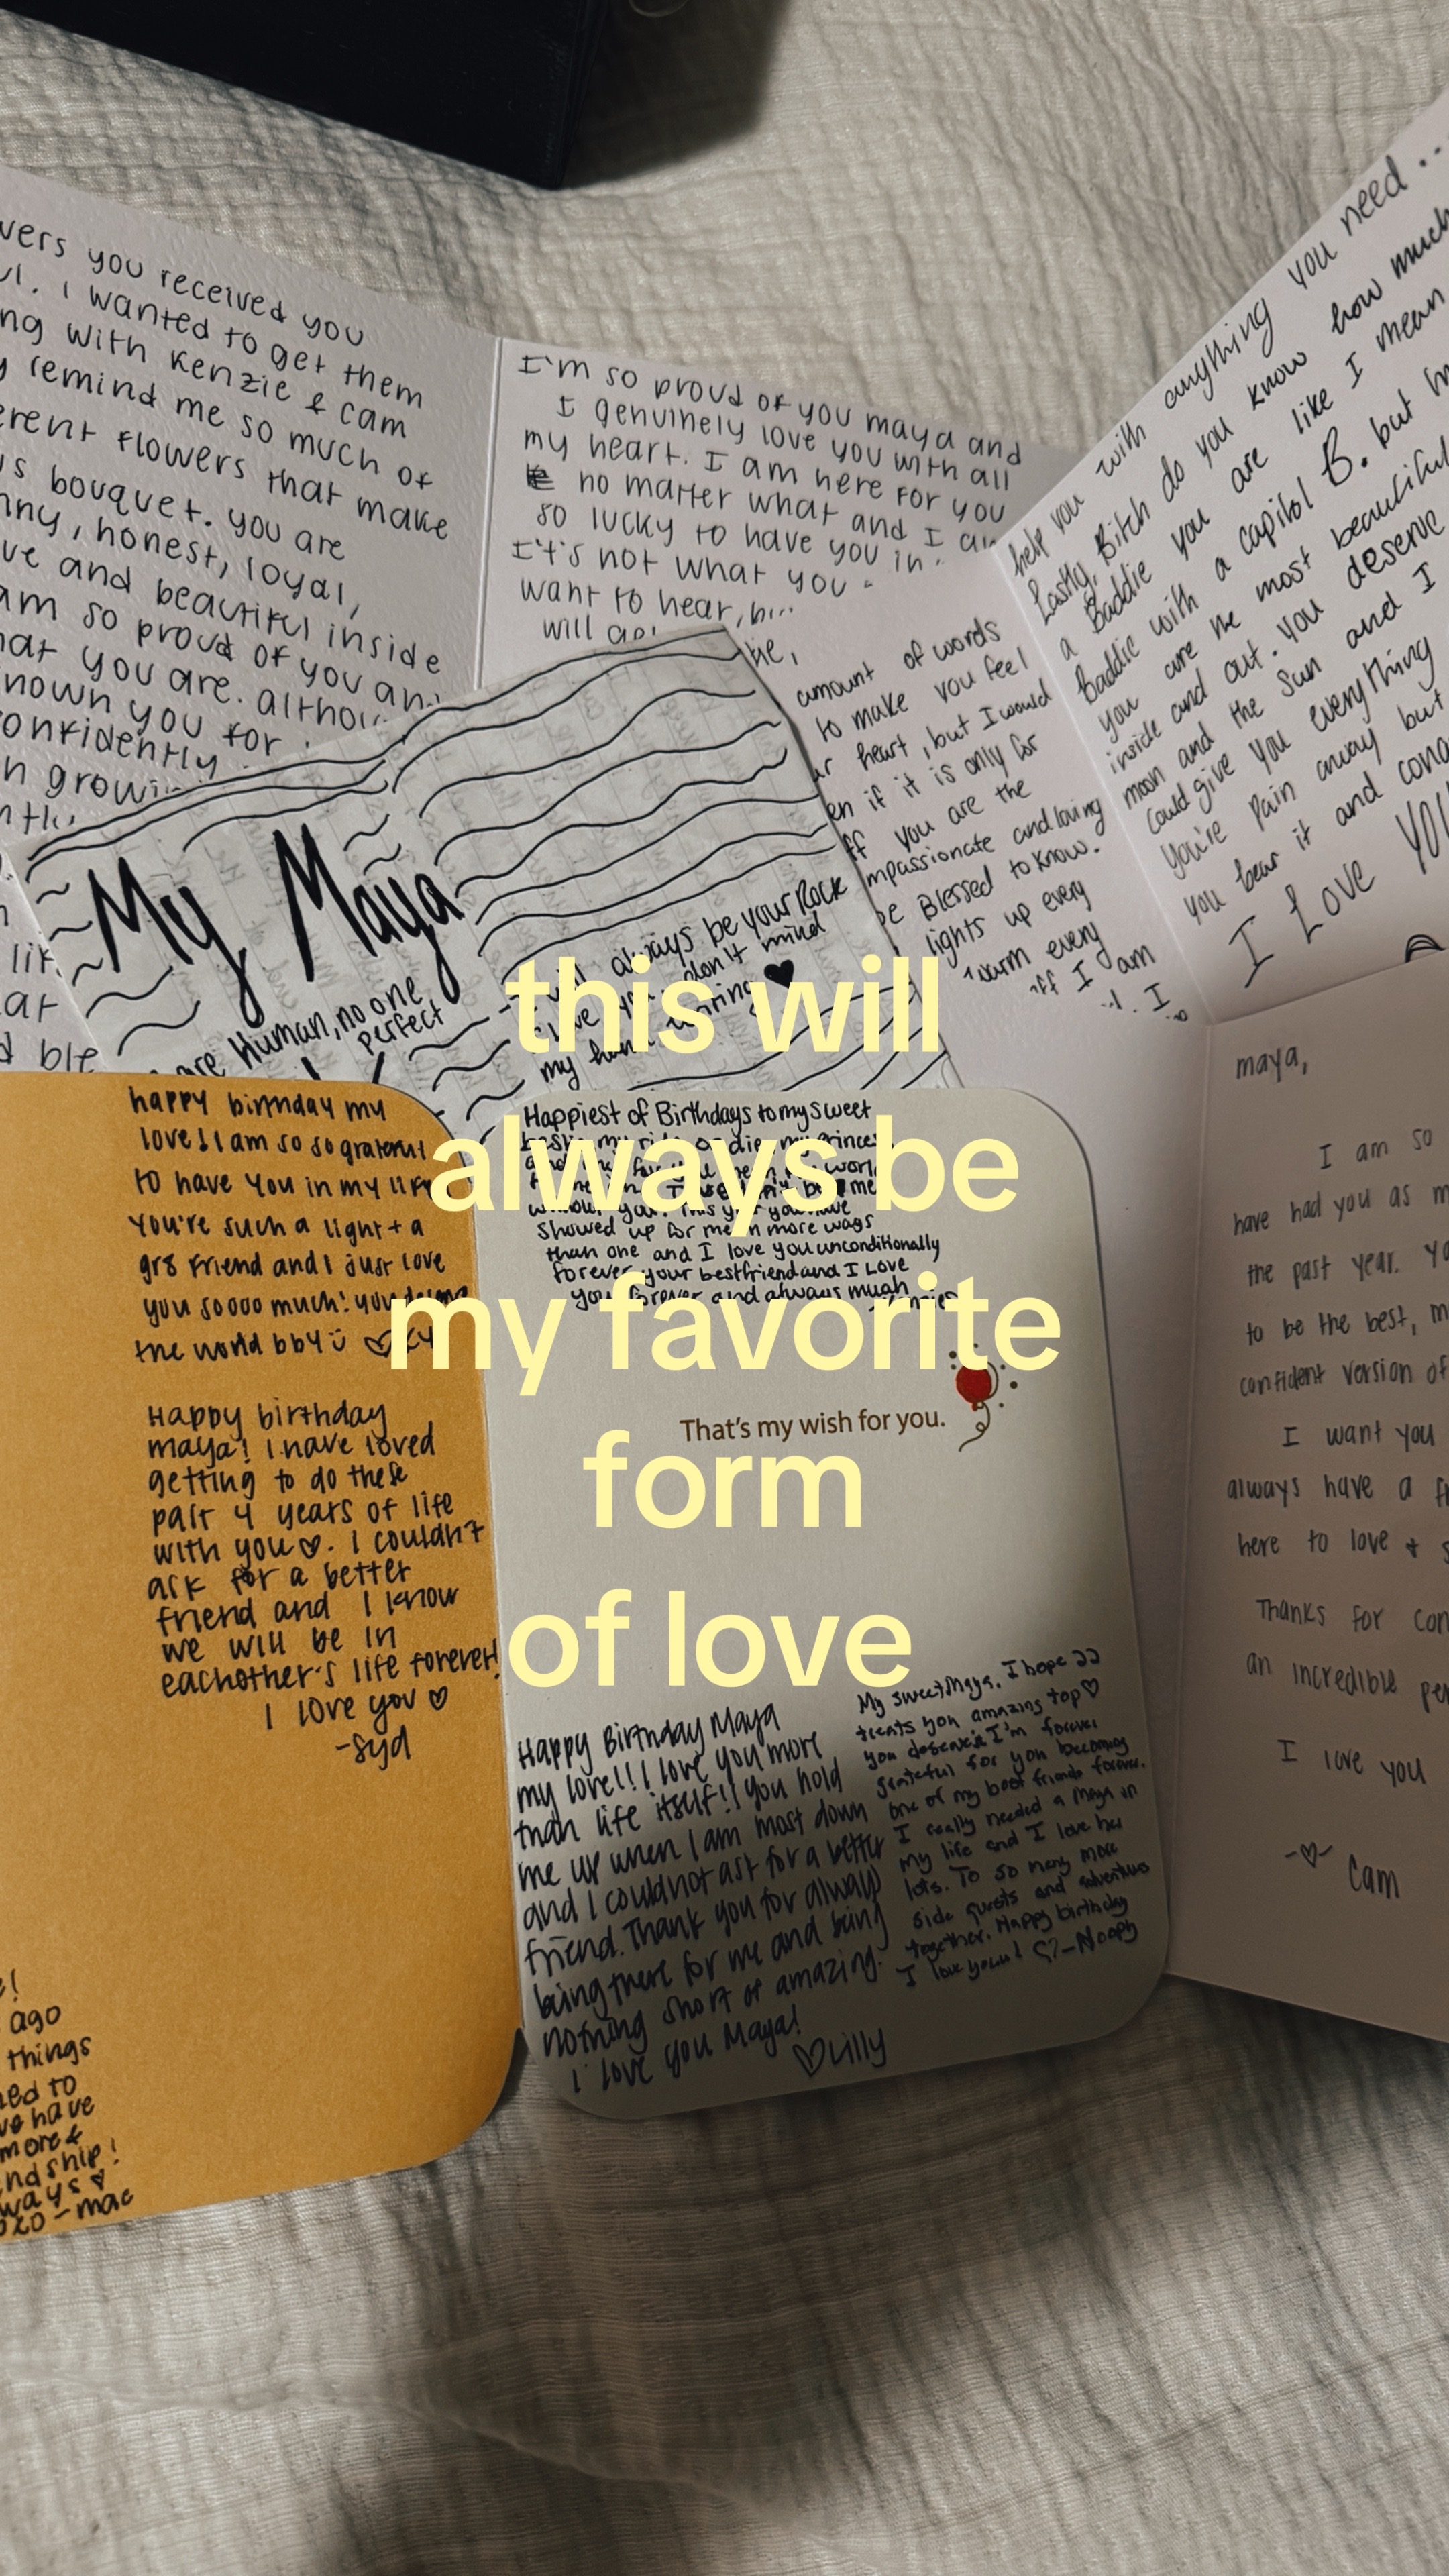 vers you received you
I wanted to get them
ng with Kenzie & Cam
remind me so much of
erent flowers that make
s bouquet. you are
nny, honest, loyal,
ve and beautiful inside
am so proud of you and
hat you are. althou
nown you for
onfidently
n growi
I'm so proud of you maya and
I genuinely love you with all
my heart. I am here for you
no matter what and I am
so lucky to have you in
It's not what you
want to hear, b
will
amount of words
to make you feel
heart, but I would
en if it is only for
you are the
mpassionate and loving
be Blessed to know.
lights up every
warm every
I am
help you with anything you need..
Lastly, Bitch do you know how much
a Baddie you are like I mean
Baddie with a capitol B. but
you are the most beautiful
inside and out. You deserve
moon and the sun and I
could give you everything
you're pain away but
you bear it and
I Love YOU
My Maya
are Human, no one
perfect
will always be your Rock
love you don't mind
my hand writing ♥
this will
always be
my favorite
form
of love
happy birthday my
love! I am so so grateful
to have you in my life
You're such a light + a
gr8 friend and I just love
you soooo much! you deserve
the world bby
Happy birthday
maya! I have loved
getting to do these
past 4 years of life
with you ♡. I couldn't
ask for a better
friend and I know
we will be in
eachother's life forever!
I love you ♡
-syd
ago
things
ed to
we have
more &
ndship!
ways
-mac
Happiest of Birthdays to my sweet
bestie my ride or die, my princess
showed up for me in more ways
than one and I love you unconditionally
forever your bestfriend and I Love
you forever and always muah
That's my wish for you.
Happy Birthday Maya
my love!!! I love you more
than life itself!! you hold
me up when I am most down
and I could not ask for a better
friend. Thank you for always
being there for me and being
nothing short of amazing.
I love you Maya!
♡Lilly
My sweet Maya, I hope 22
treats you amazing
you deserve it I'm forever
grateful for you becoming
one of my best friends forever.
I really needed a Maya in
my life and I love her
lots. To so many more
side quests and adventures
together. Happy birthday
I love you! ♡-Noopy
maya,
I am so
have had you as m
the past year. Yo
to be the best, m
confident version of
I want you
always have a fr
here to love + s
Thanks for con
an incredible pe
I love you
-♡- Cam